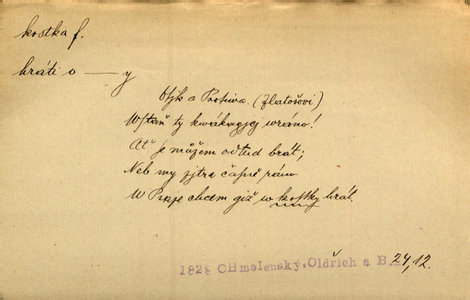 kostka f.
hráti o — y
Hýk a Protiwa. (Zlatošowi)
Wstaň ty kwákagjcý wráno!
Ať je můžem odtud brát;
Neb my zjtra časně ráno
W Praze chcem giž w kostky hrát.
1828 CHmelenský, Oldřich a B. 24, 12.